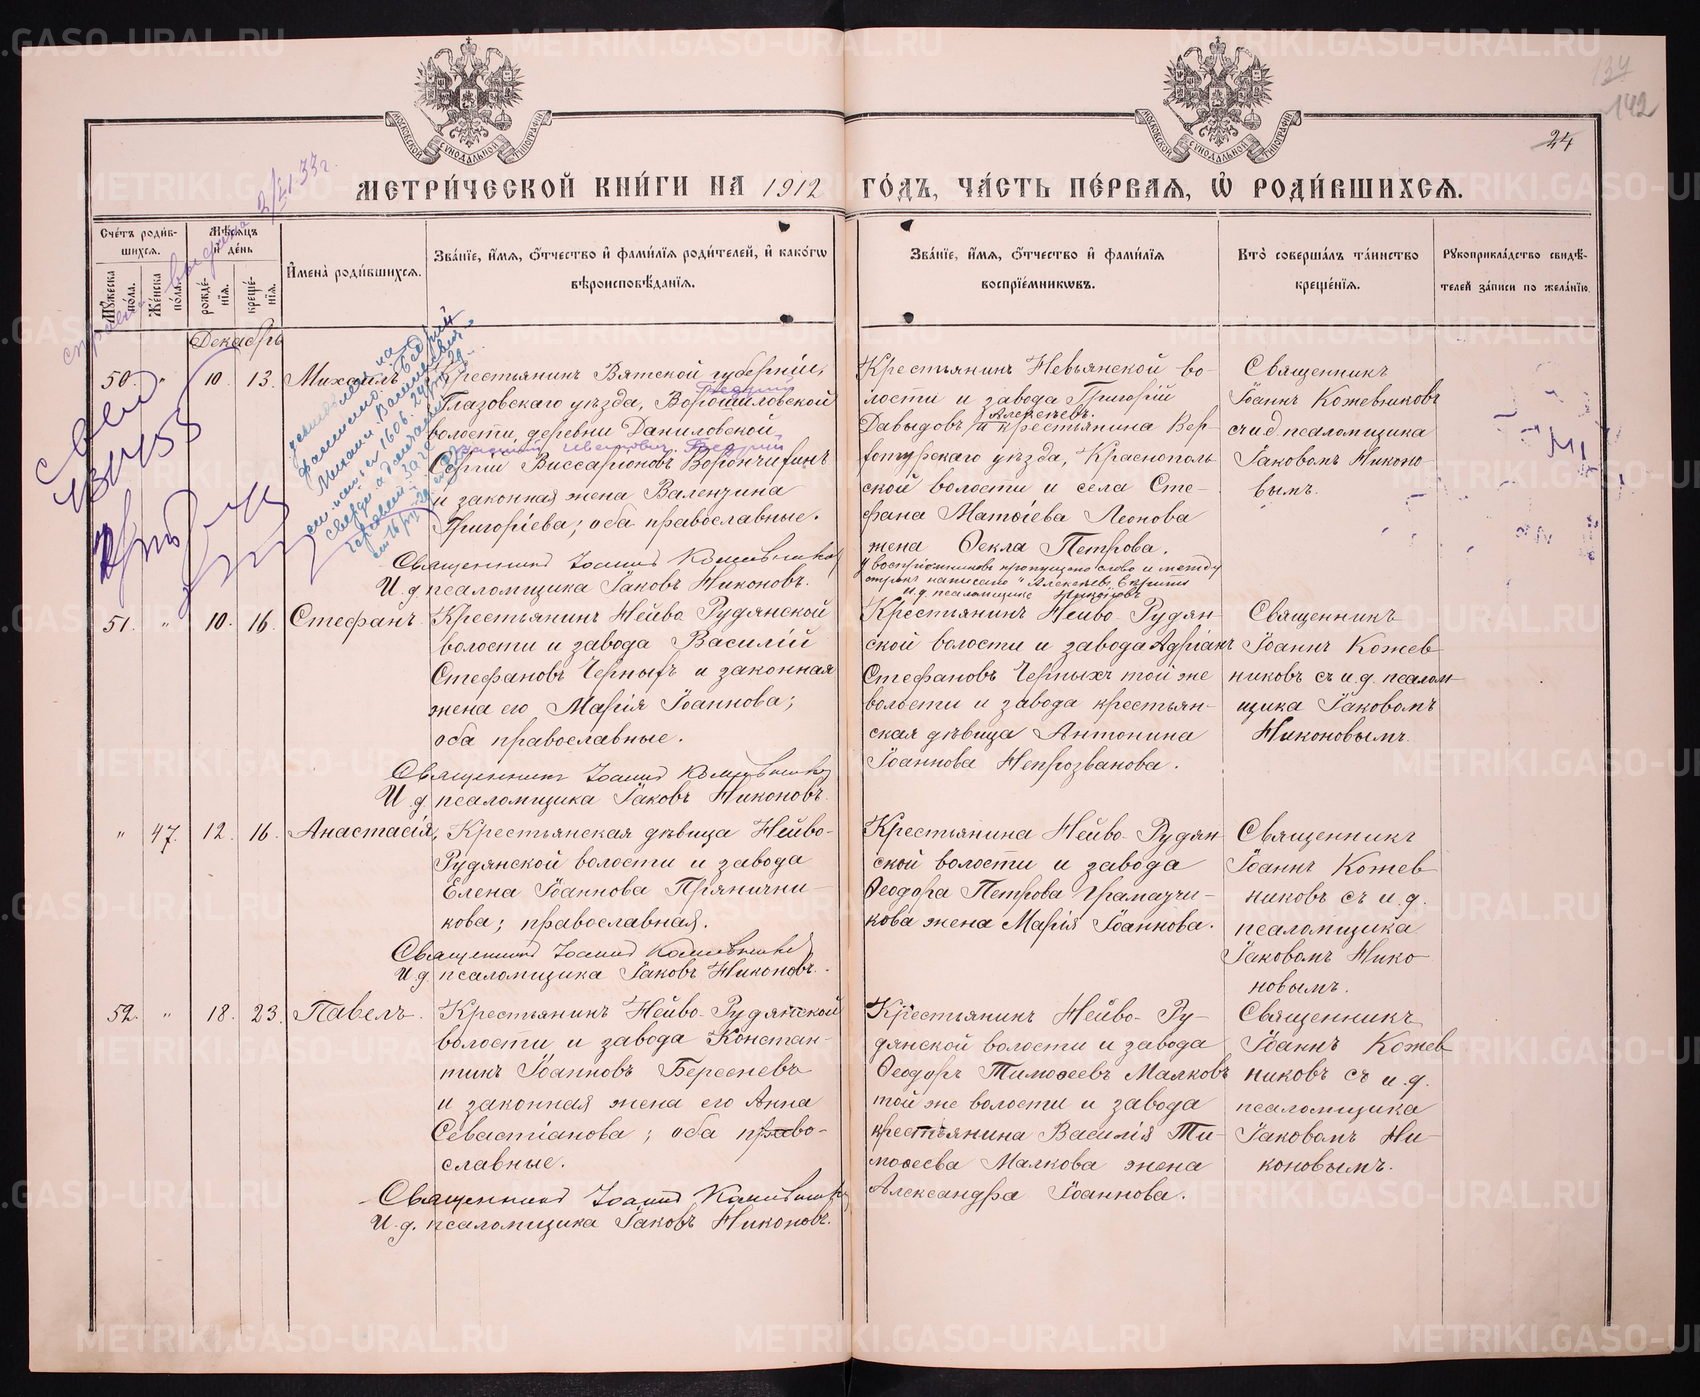 134
142
24
МЕТРИ́ЧЕСКОЙ КНИ́ГИ НА 1912 ГО́ДЪ, ЧА́СТЬ ПЕ́РВАѦ, Ѡ҆ РОДИ́ВШИХСѦ.
Сче́тъ роди́в-
шихсѧ.
Мꙋ́жеска по́ла.
Же́нска по́ла.
Мѣ́сѧцъ и҆ де́нь
рожде́-нїѧ.
креще́-нїѧ.
И҆мена̀ роди́вшихсѧ.
Зва́нїе, и҆́мѧ, ѻ҆́тчество и҆ фами́лїѧ роди́телей, и҆ како́гѡ
вѣроисповѣ́данїѧ.
Зва́нїе, и҆́мѧ, ѻ҆́тчество и҆ фами́лїѧ
воспрїе́мникѡвъ.
Кто̀ соверша́лъ та́инство
креще́нїѧ.
Рꙋкоприкла́дство свидѣ́-
телей за́писи по жела́нїю.
Декабрь
50. " 10. 13. Михаилъ
Крестьянинъ Вятской губерніи,
Глазовскаго уѣзда, Ворошиловской
волости, деревни Даниловской
Сергій Виссаріоновъ Ворончихинъ
и законная жена Валентина
Григоріева; оба православные.
Священникъ Іоаннъ Кожевниковъ
И. д. псаломщика Іаковъ Никоновъ.
Крестьянинъ Невьянской во-
лости и завода Григорій
Алексѣевъ.
Давыдовъ и крестьянина Вер-
хотурскаго уѣзда, Краснополь
ской волости и села Сте-
фана Матѳіева Леонова
жена Ѳекла Петрова.
У воспріемниковъ пропущено слово и между
строкъ написано "Алексѣевъ" вѣрить
И. д. псаломщика Никоновъ
Священникъ
Іоаннъ Кожевниковъ
съ и д псаломщика
Іаковомъ Никоно-
вымъ.
51. " 10. 16. Стефанъ
Крестьянинъ Нейво Рудянской
волости и завода Василій
Стефановъ Черныхъ и законная
жена его Марія Іоаннова;
оба православные.
Священникъ Іоаннъ Кожевниковъ
И. д. псаломщика Іаковъ Никоновъ.
Крестьянинъ Нейво-Рудян-
ской волости и завода Адріанъ
Стефановъ Черныхъ той же
волости и завода крестьян-
ская дѣвица Антонина
Іоаннова Непрозванова.
Священникъ
Іоаннъ Кожев
никовъ съ и. д. псалом-
щика Іаковомъ
Никоновымъ.
" 47. 12. 16. Анастасія,
Крестьянская дѣвица Нейво-
Рудянской волости и завода
Елена Іоаннова Прянични-
кова; православная.
Священникъ Іоаннъ Кожевниковъ
И. д. псаломщика Іаковъ Никоновъ.
Крестьянина Нейво-Рудян
ской волости и завода
Ѳеодора Петрова Грамазчи-
кова жена Марія Іоаннова.
Священникъ
Іоаннъ Кожев
никовъ съ и. д.
псаломщика
Іаковомъ Нико
новымъ.
52. " 18. 23. Павелъ.
Крестьянинъ Нейво-Рудянской
волости и завода Констан-
тинъ Іоанновъ Бересневъ
и законная жена его Анна
Севастіанова; оба право-
славные.
Священникъ Іоаннъ Кожевниковъ
И. д. псаломщика Іаковъ Никоновъ.
Крестьянинъ Нейво-Ру-
дянской волости и завода
Ѳеодоръ Тимоѳеевъ Малковъ
той же волости и завода
крестьянина Василія Ти-
моѳеева Малкова жена
Александра Іоаннова.
Священникъ
Іоаннъ Кожев
никовъ съ и. д.
псаломщика
Іаковомъ Ни-
коновымъ.
METRIKI.GASO-URAL.RU